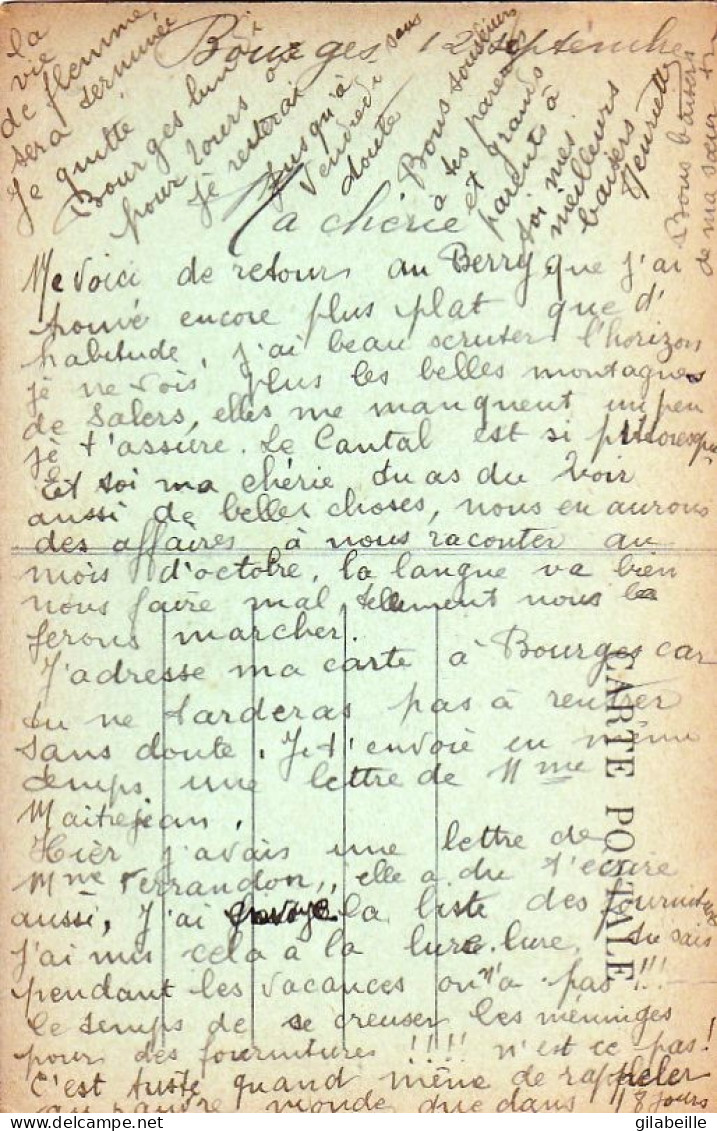 Bourges 12 septembre
La chérie
Me voici de retours au Berry, que j'ai
trouvé encore plus plat que d'
habitude, j'ai beau scruter l'horizon
je ne vois plus les belles montagnes
de Salers, elles me manquent un peu
je t'assure. Le Cantal est si pittoresque
Et toi ma chérie tu as du voir
aussi de belles choses, nous en aurons
des affaires à nous raconter au
mois d'octobre, la langue va bien
nous faire mal, tellement nous la
ferons marcher.
J'adresse ma carte à Bourges car
tu ne tarderas pas à rentrer
sans doute. Je t'envoie en même
temps une lettre de Mme
Maitrejean.
Hier j'avais une lettre de
Mme Ferrandon, elle a du t'écrire
aussi, J'ai envoyé la liste des fournitures
J'ai mis cela à la lure lure, tu sais
pendant les vacances on n'a pas !!!
le temps de se creuser les méninges
pour des fournitures !!!! n'est ce pas!
C'est juste quand même de rappeler
au pauvre monde que dans 18 jours
la
vie
de flemme
sera terminée
Je quitte
Bourges lundi
pour Tours où
je resterai
jusqu'à
vendredi sans
doute
Bons souvenirs
à tes parents
et grands
parents à
toi mes
meilleurs
baisers
Henriette
Bons baisers
de ma sœur
CARTE POSTALE
www.delcampe.net
gilabeille